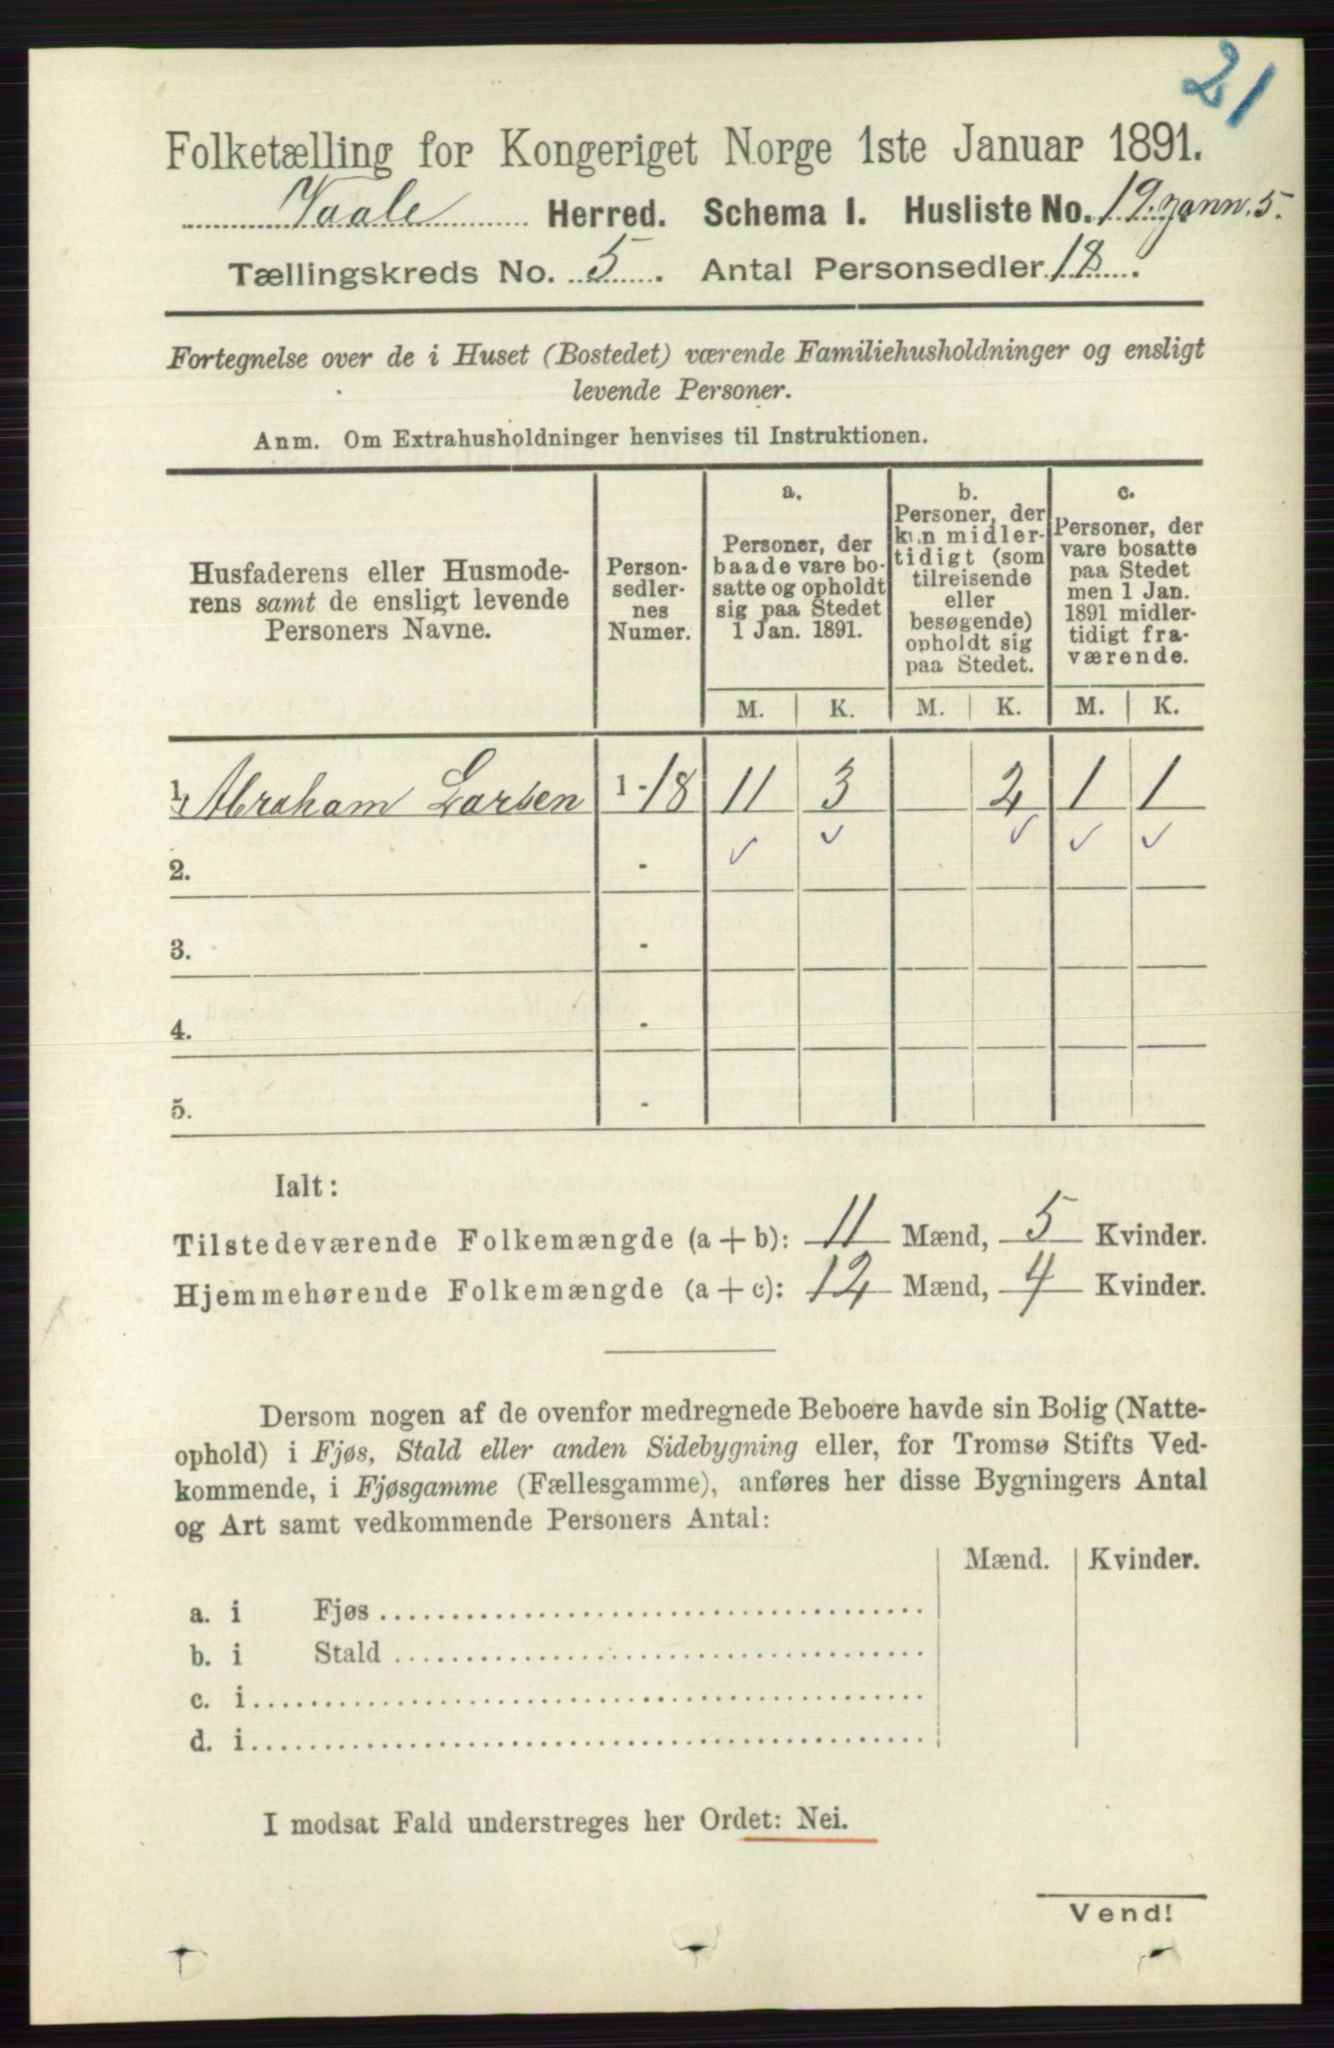 21
Folketælling for Kongeriget Norge 1ste Januar 1891.
Vaale Herred. Schema I. Husliste No. 19
Tællingskreds No. 5. Antal Personsedler 18.
Fortegnelse over de i Huset (Bostedet) værende Familiehusholdninger og ensligt
levende Personer.
Anm. Om Extrahusholdninger henvises til Instruktionen.
Husfaderens eller Husmode-
rens samt de ensligt levende
Personers Navne.
Person-
sedler-
nes
Numer.
a.
Personer, der
baade vare bo-
satte og opholdt
sig paa Stedet
1 Jan. 1891.
b.
Personer, der
kun midler-
tidigt (som
tilreisende
eller
besøgende)
opholdt sig
paa Stedet.
c.
Personer, der
vare bosatte
paa Stedet
men 1 Jan.
1891 midler-
tidigt fra-
værende.
M. K. M. K. M. K.
1. Abraham Larsen 1-18 11 3 2 1 1
2. - ✓ ✓ ✓ ✓ ✓
3. -
4. -
5. -
Ialt:
Tilstedeværende Folkemængde (a + b): 11 Mænd, 5 Kvinder.
Hjemmehørende Folkemængde (a + c): 12 Mænd, 4 Kvinder.
Dersom nogen af de ovenfor medregnede Beboere havde sin Bolig (Natte-
ophold) i Fjøs, Stald eller anden Sidebygning eller, for Tromsø Stifts Ved-
kommende, i Fjøsgamme (Fællesgamme), anføres her disse Bygningers Antal
og Art samt vedkommende Personers Antal:
Mænd. Kvinder.
a. i Fjøs
b. i Stald
c. i
d. i
I modsat Fald understreges her Ordet: Nei.
Vend!